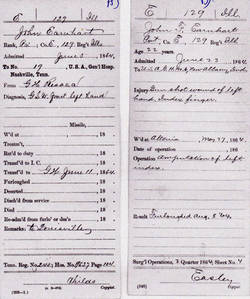 E 129 Ill
John Earnhart
Rank, Pvt. Co. E, 129 Reg't Ills
Admitted June 3, 1864,
To 19 U.S.A. Gen'l Hosp.
Nashville, Tenn.
From G.H. Resaca
Diagnosis, G.S.W. Left Hand
Missile,
W'd at , 186
Treatm't,
Ret'd to duty , 186
Transf'd to I.C. , 186
Transf'd to G.H. June 11, 1864
Furloughed , 186
Deserted , 186
Disch'd from service , 186
Died , 186
Re-adm'd from furlo' or des'n , 186
Remarks: Louisville
Copyist.
E 129 Ill
John T. Earnhart
Pvt. Co. E, 129 Reg't Ills
Age 22 years
Admitted June 22 1864,
Injury Gun shot wound of left
hand, Index finger.
W'd at Altoona May 27, 1864
Date of operation , 186
Operation Amputation of left
index.
Result Furloughed Aug. 5 64
Surg'l Operations, 3 Quarter 1864; Sheet No. 4
Easley
Copyist.